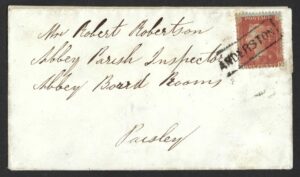 Mr Robert Robertson
Abbey Parish Inspector
Abbey Board Rooms
Paisley
ANDERSTON